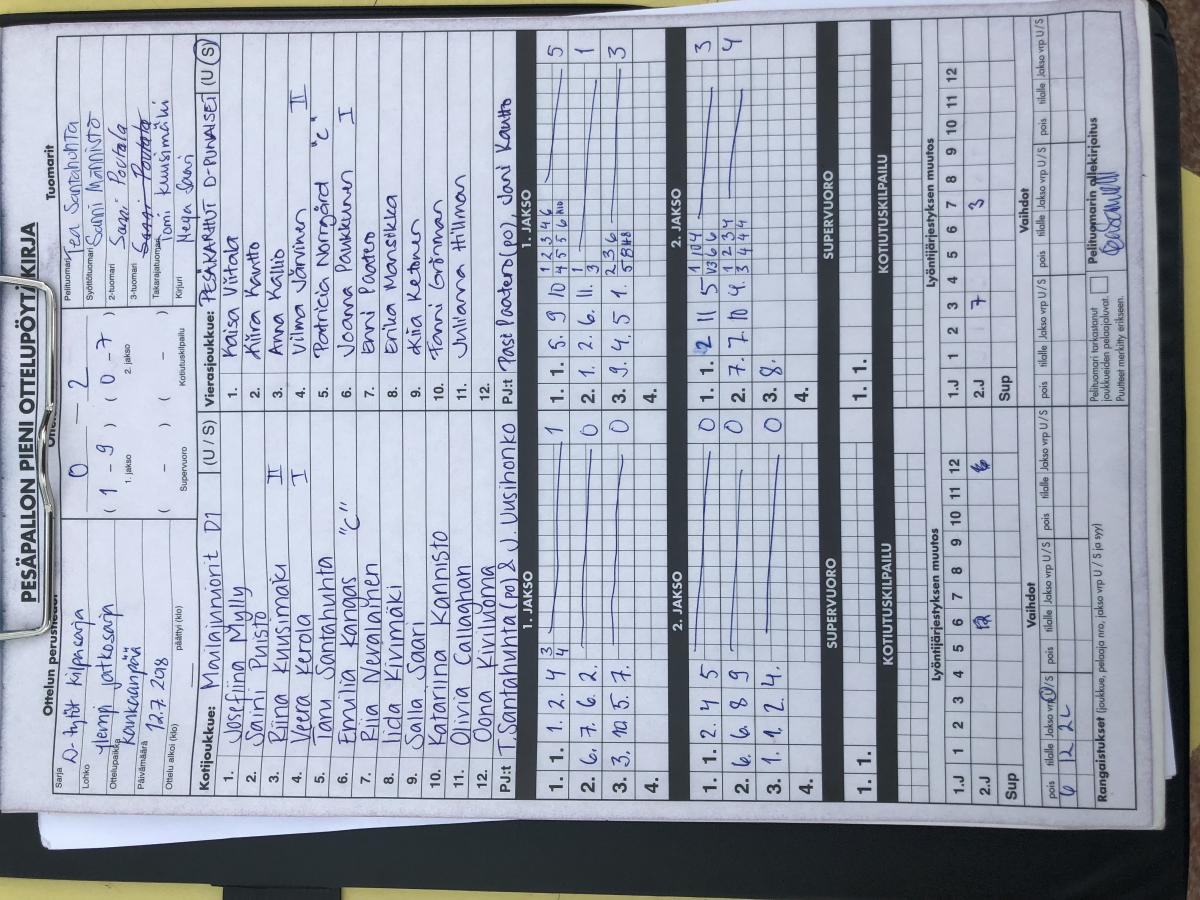 PESÄPALLON PIENI OTTELUPÖYTÄKIRJA
Ottelun perustiedot
Tuomarit
Sarja D-tytöt kilpasarja
Lohko ylempi jatkosarja
Ottelupaikka Kankaanpää
Päivämäärä 12.7.2018
Ottelu alkoi (klo) päättyi (klo)
0 – 2
( 1 - 9 ) ( 0 - 7 )
1. jakso 2. jakso
( - ) ( - )
Supervuoro Kotiutuskilpailu
Pelituomari Tea Santahuhta
Syöttötuomari Sanni Männistö
2-tuomari Sari Poutala
3-tuomari
Takarajatuomari Tomi Kuusimäki
Kirjuri Neya Saari
Kotijoukkue: Mailajuniorit D1 (U / S)
1. Josefiina Mylly
2. Saini Puisto
3. Riina Kuusimäki II
4. Veera Kerola I
5. Taru Santahuhta
6. Emilia Kangas "C"
7. Riia Nevalainen
8. Iida Kivimäki
9. Salla Saari
10. Katariina Kannisto
11. Olivia Callaghan
12. Oona Kiviluoma
PJ:t T. Santahuhta (po) & J. Uusihonko
Vierasjoukkue: PESÄKARHUT D-PUNAISET (U / S)
1. Kaisa Viitala
2. Kiira Kautto
3. Anna Kallio
4. Vilma Järvinen II
5. Patricia Norrgård "C"
6. Joanna Paukkunen I
7. Enni Paatero
8. Erika Mansikka
9. Kiia Ketonen
10. Fanni Grönman
11. Julianna Hillman
12.
PJ:t Pasi Paatero (po), Jani Kautto
1. JAKSO
1. 1. 1. 2. 4 3 4 1
2. 6. 7. 6. 2. 0
3. 3. 10. 5. 7. 0
4.
1. JAKSO
1. 1. 5. 9 10 1 2 3 4 6 4 5 5 6 5
2. 1. 2. 6. 11. 1 3 1
3. 9. 4. 5 1. 2 3 6 3
4.
2. JAKSO
1. 1. 2. 4 5 0
2. 6. 6. 8 9 0
3. 1. 1. 2. 4. 0
4.
2. JAKSO
1. 1. 2 11 5 3
2. 7. 7. 10 4. 1 2 3 4 3 4 4 4 4
3. 8.
4.
SUPERVUORO
1. 1.
SUPERVUORO
1. 1.
KOTIUTUSKILPAILU
KOTIUTUSKILPAILU
Lyöntijärjestyksen muutos
1.J 1 2 3 4 5 6 7 8 9 10 11 12
2.J 12 6
Sup
Lyöntijärjestyksen muutos
1.J 1 2 3 4 5 6 7 8 9 10 11 12
2.J 7 3
Sup
Vaihdot
pois tilalle Jakso vrp U / S pois tilalle Jakso vrp U / S pois tilalle Jakso vrp U / S
6 12 2
Vaihdot
pois tilalle Jakso vrp U / S pois tilalle Jakso vrp U / S pois tilalle Jakso vrp U / S
Rangaistukset (joukkue, pelaaja nro, jakso vrp U / S ja syy)
Pelituomari tarkastanut joukkueiden pelaajaluvat. Puutteet merkitty erikseen.
Pelituomarin allekirjoitus